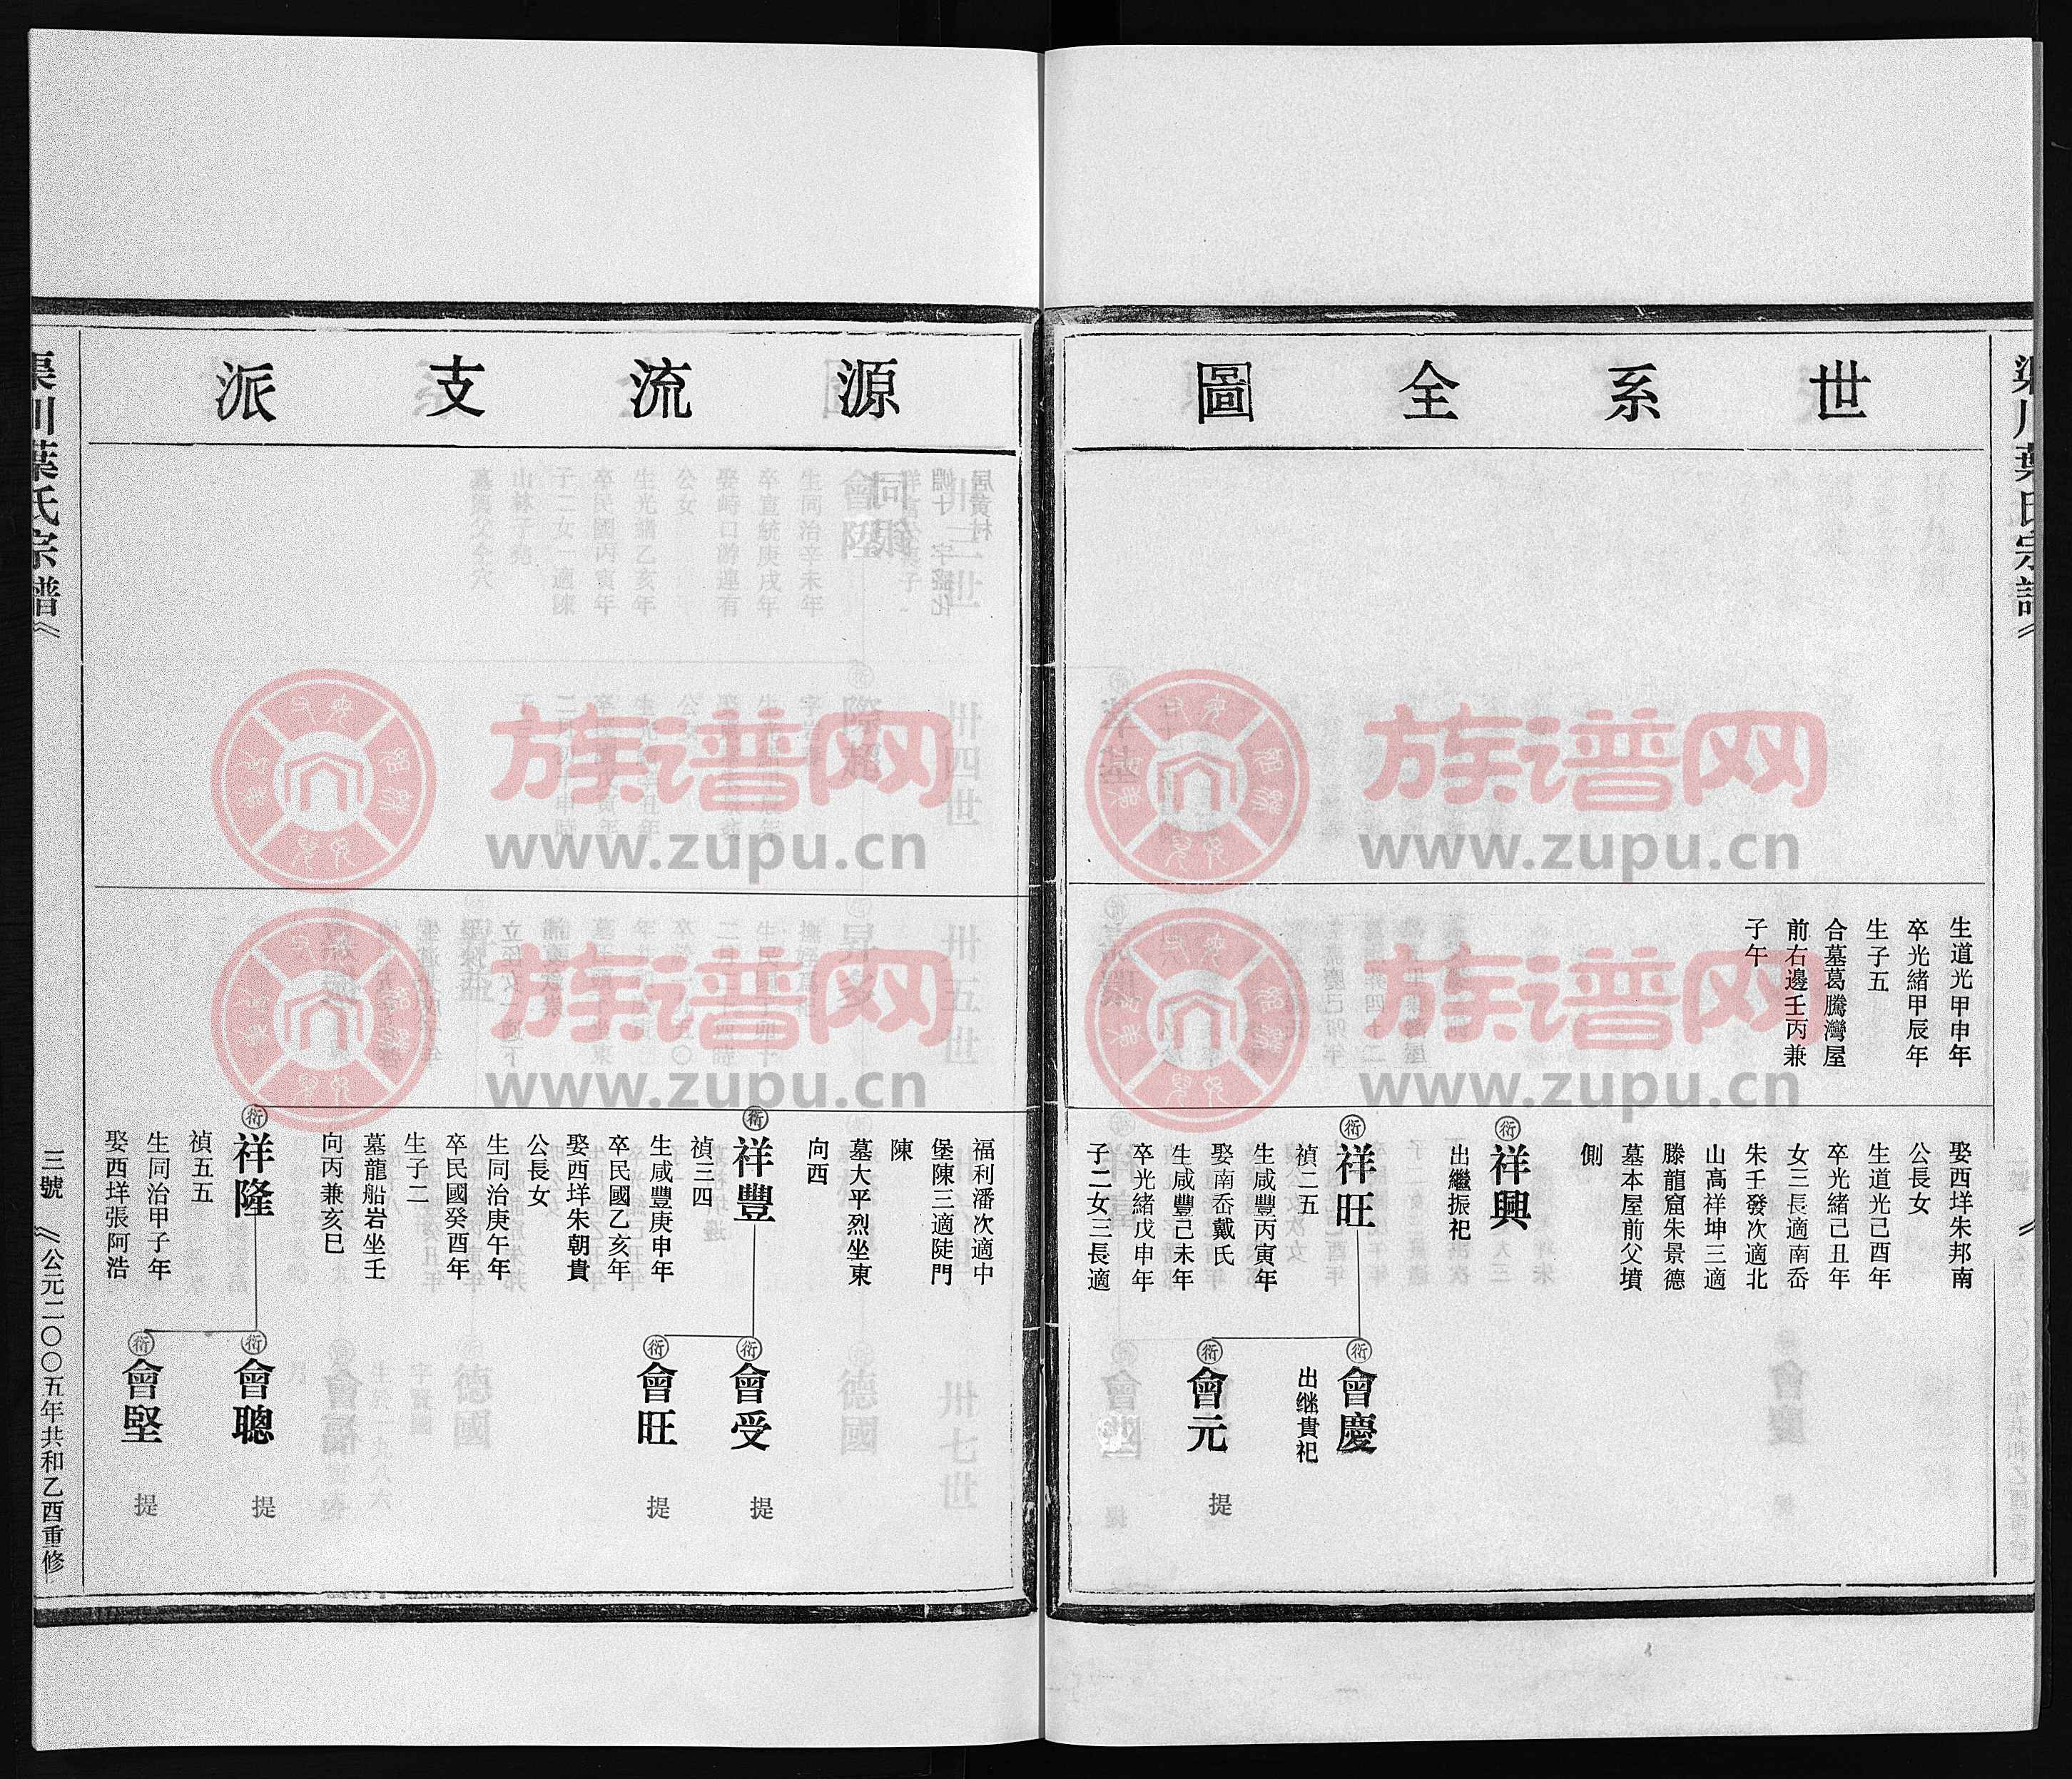 世系全圖
生道光甲申年
卒光緒甲辰年
生子五
合墓葛騰灣屋
前右邊壬丙兼
子午
娶西垟朱邦南
公長女
生道光己酉年
卒光緒己丑年
女三長適南岙
朱壬發次適北
山高祥坤三適
滕龍窟朱景德
墓本屋前父墳
側
衍
祥興
出繼振祀
衍
祥旺
禎二五
生咸豐丙寅年
娶南岙戴氏
生咸豐己未年
卒光緒戊申年
子二女三長適
衍
會慶
出继貴祀
衍
會元
提
源流支派
福利潘次適中
堡陳三適陡門
陳
墓大平烈坐東
向西
衍
祥豐
禎三四
生咸豐庚申年
卒民國乙亥年
娶西垟朱朝貴
公長女
生同治庚午年
卒民國癸酉年
生子二
墓龍船岩坐壬
向丙兼亥巳
衍
會受
提
衍
會旺
提
衍
祥隆
禎五五
生同治甲子年
娶西垟張阿浩
衍
會聰
提
衍
會堅
提
川葉氏宗譜
三號
公元二〇〇五年共和乙酉重修
族谱网
www.zupu.cn
族谱网
www.zupu.cn
族谱网
www.zupu.cn
族谱网
www.zupu.cn